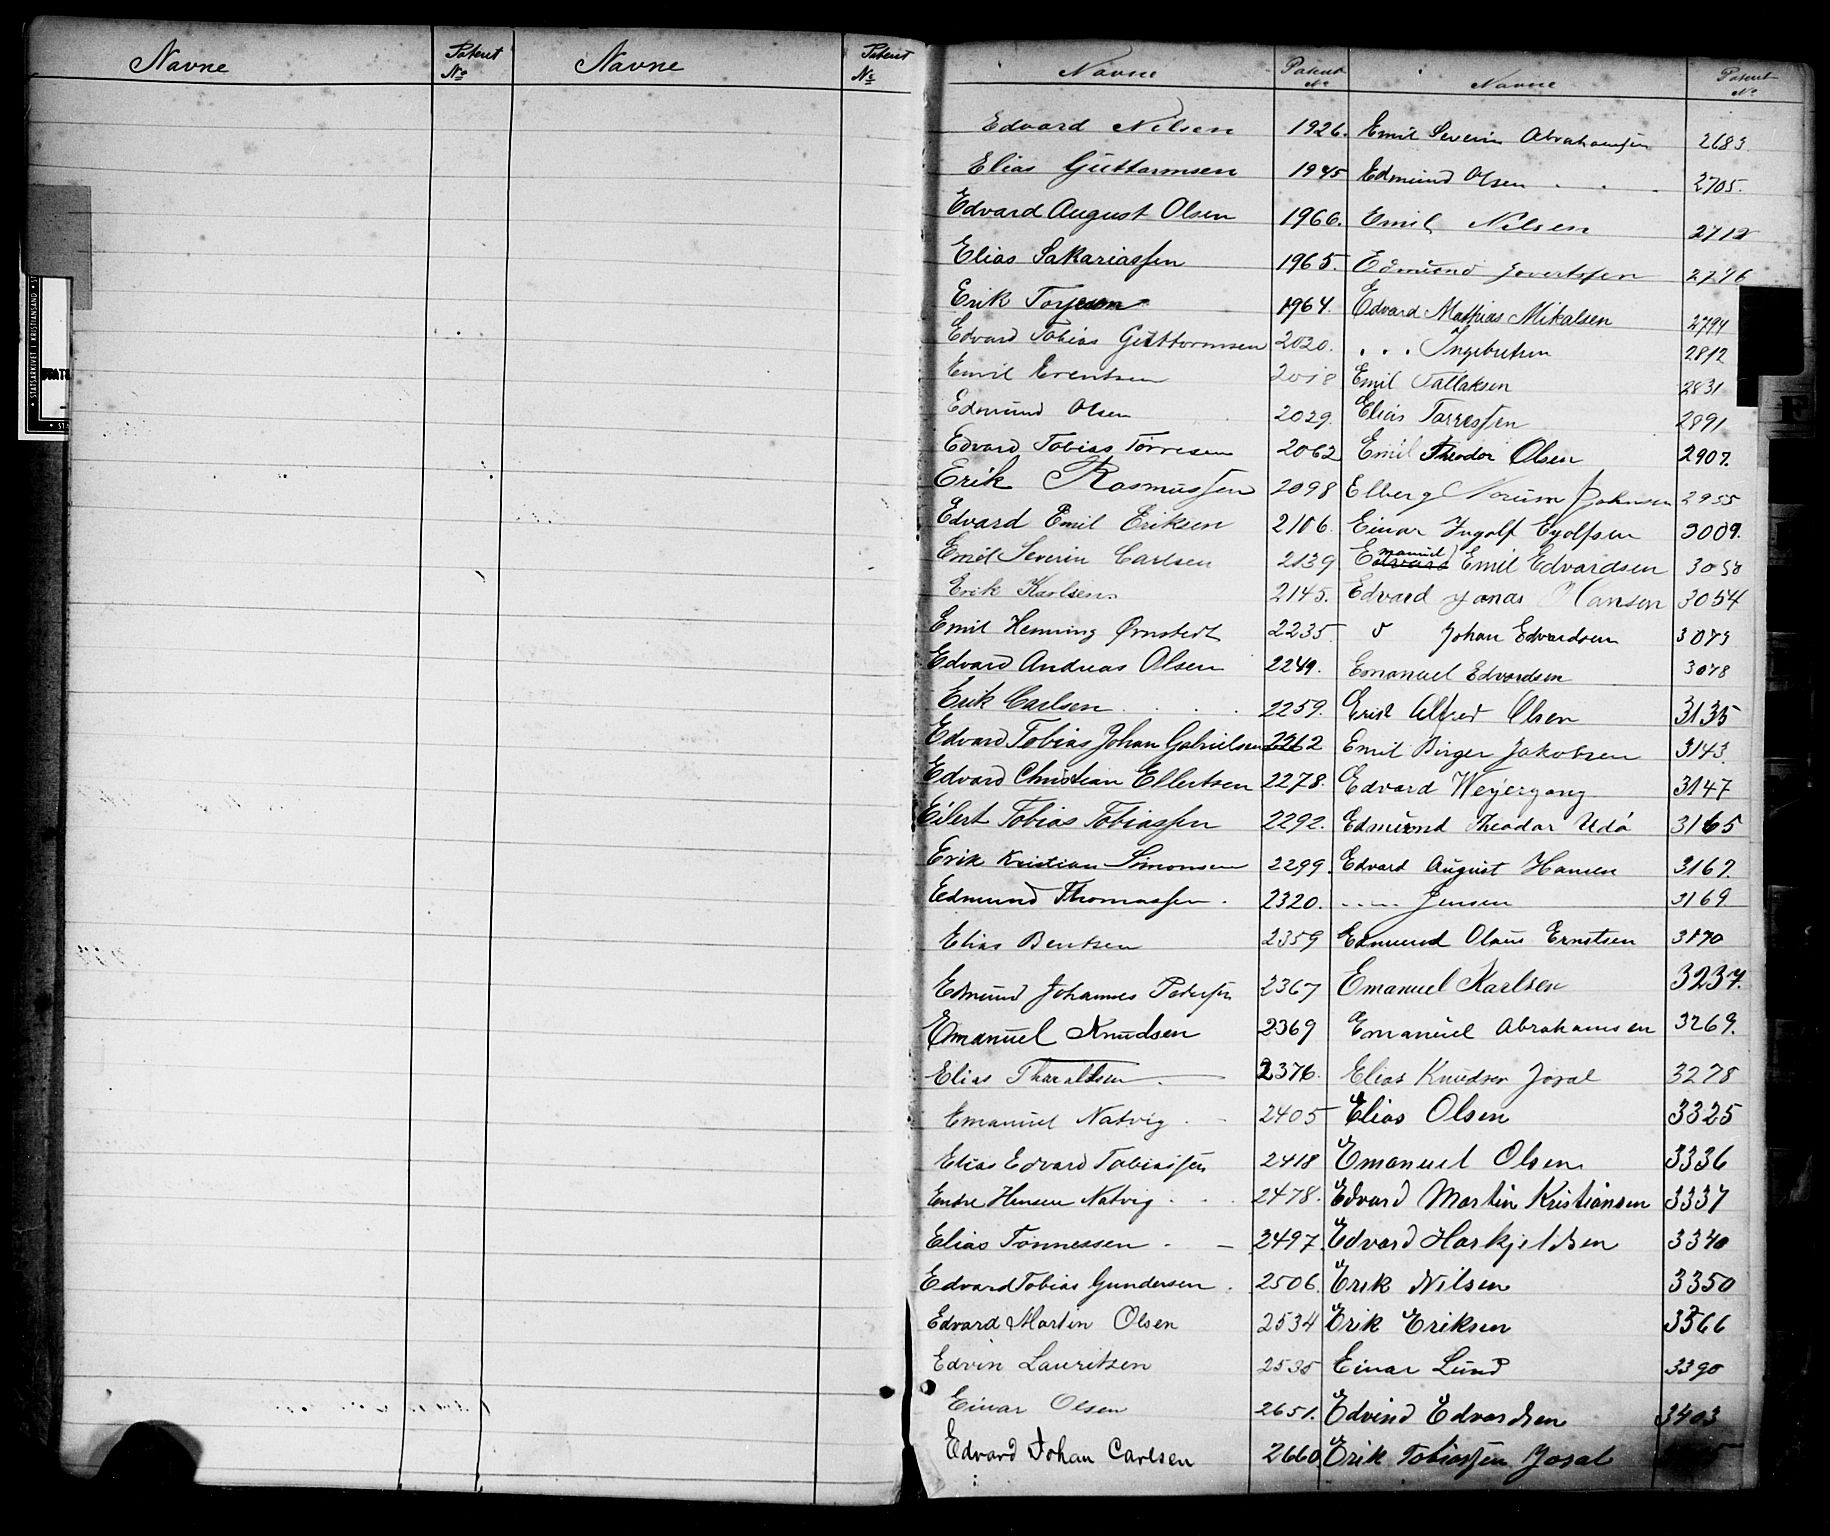 Navne Patent No Navne Patent No
Navne Patent No
Edvard Nilsen 1926.
Elias Guttormsen 1945
Edvard August Olsen 1966.
Elias Sakariassen 1965.
Erik 1964.
Edvard Tobias Guttormsen 2020.
Emil Erentsen 2018
Edmund Olsen 2029.
Edvard Tobias Torresen 2062
Erik Rasmussen 2098
Edvard Emil Eriksen 2106.
Emil Severin Carlsen 2139
Erik Karlsen. 2145.
Emil Henning Ørnstedt 2235.
Edvard Andreas Olsen 2249.
Erik Carlsen 2259.
Edvard Tobias Johan Gabrielsen 2262
Edvard Christian Ellertsen 2278.
Eilert Tobias Tobiassen 2292.
Erik Kristian Simonsen 2299.
Edmund Thomassen. 2320.
Elias Bentsen 2359
Edmund Johannes Pedersen 2367
Emanuel Knudsen 2369
Elias Tharaldsen 2376.
Emanuel Natvig 2405
Elias Edvard Tobiassen 2418
Endre Hensen Natvig 2478.
Elias Tönnessen 2497.
Edvard Tobias Gundersen. 2506.
Edvard Martin Olsen 2534
Edvin Lauritzen 2535
Einar Olsen 2651.
Edvard Johan Carlsen 2660
Navne Patent No
Emil Severin Abrahamsen 2683.
Edmund Olsen 2705.
Emil Nilsen 2712
Edmund 2776
Edvard Mathias Mikalsen 2794
Ingebretsen 2812
Emil Tallaksen 2831
Elias Torressen 2891
Emil Theodor Olsen 2907.
Elberg Johnsen 2955
Einar Ingolf Eyolfsen 3009.
Emanuel Emil Edvardsen 3050
Edvard Jonas Hansen 3054
Johan Edvardsen 3073
Emanuel Edvardsen 3078
Erik Alfred Olsen 3135
Emil Birger Jakobsen 3143.
Edvard Weyergang 3147
Edmund Theodor Udö 3165
Edvard August Hansen 3167.
Jensen 3169
Edmund Olaus Ernstsen 3170
Emanuel Karlsen 3237.
Emanuel Abrahamsen 3269.
Elias Knudsen Josal 3278
Elias Olsen 3325
Emanuel Olsen 3336
Edvard Martin Kristiansen 3337
Edvard Harkjeldsen 3340
Erik Nilsen 3350
Erik Eriksen 3366
Einar Lund 3390
Edvind Edvardsen 3403
Erik Tobiassen Josal
STATSARKIVET I KRISTIANSAND